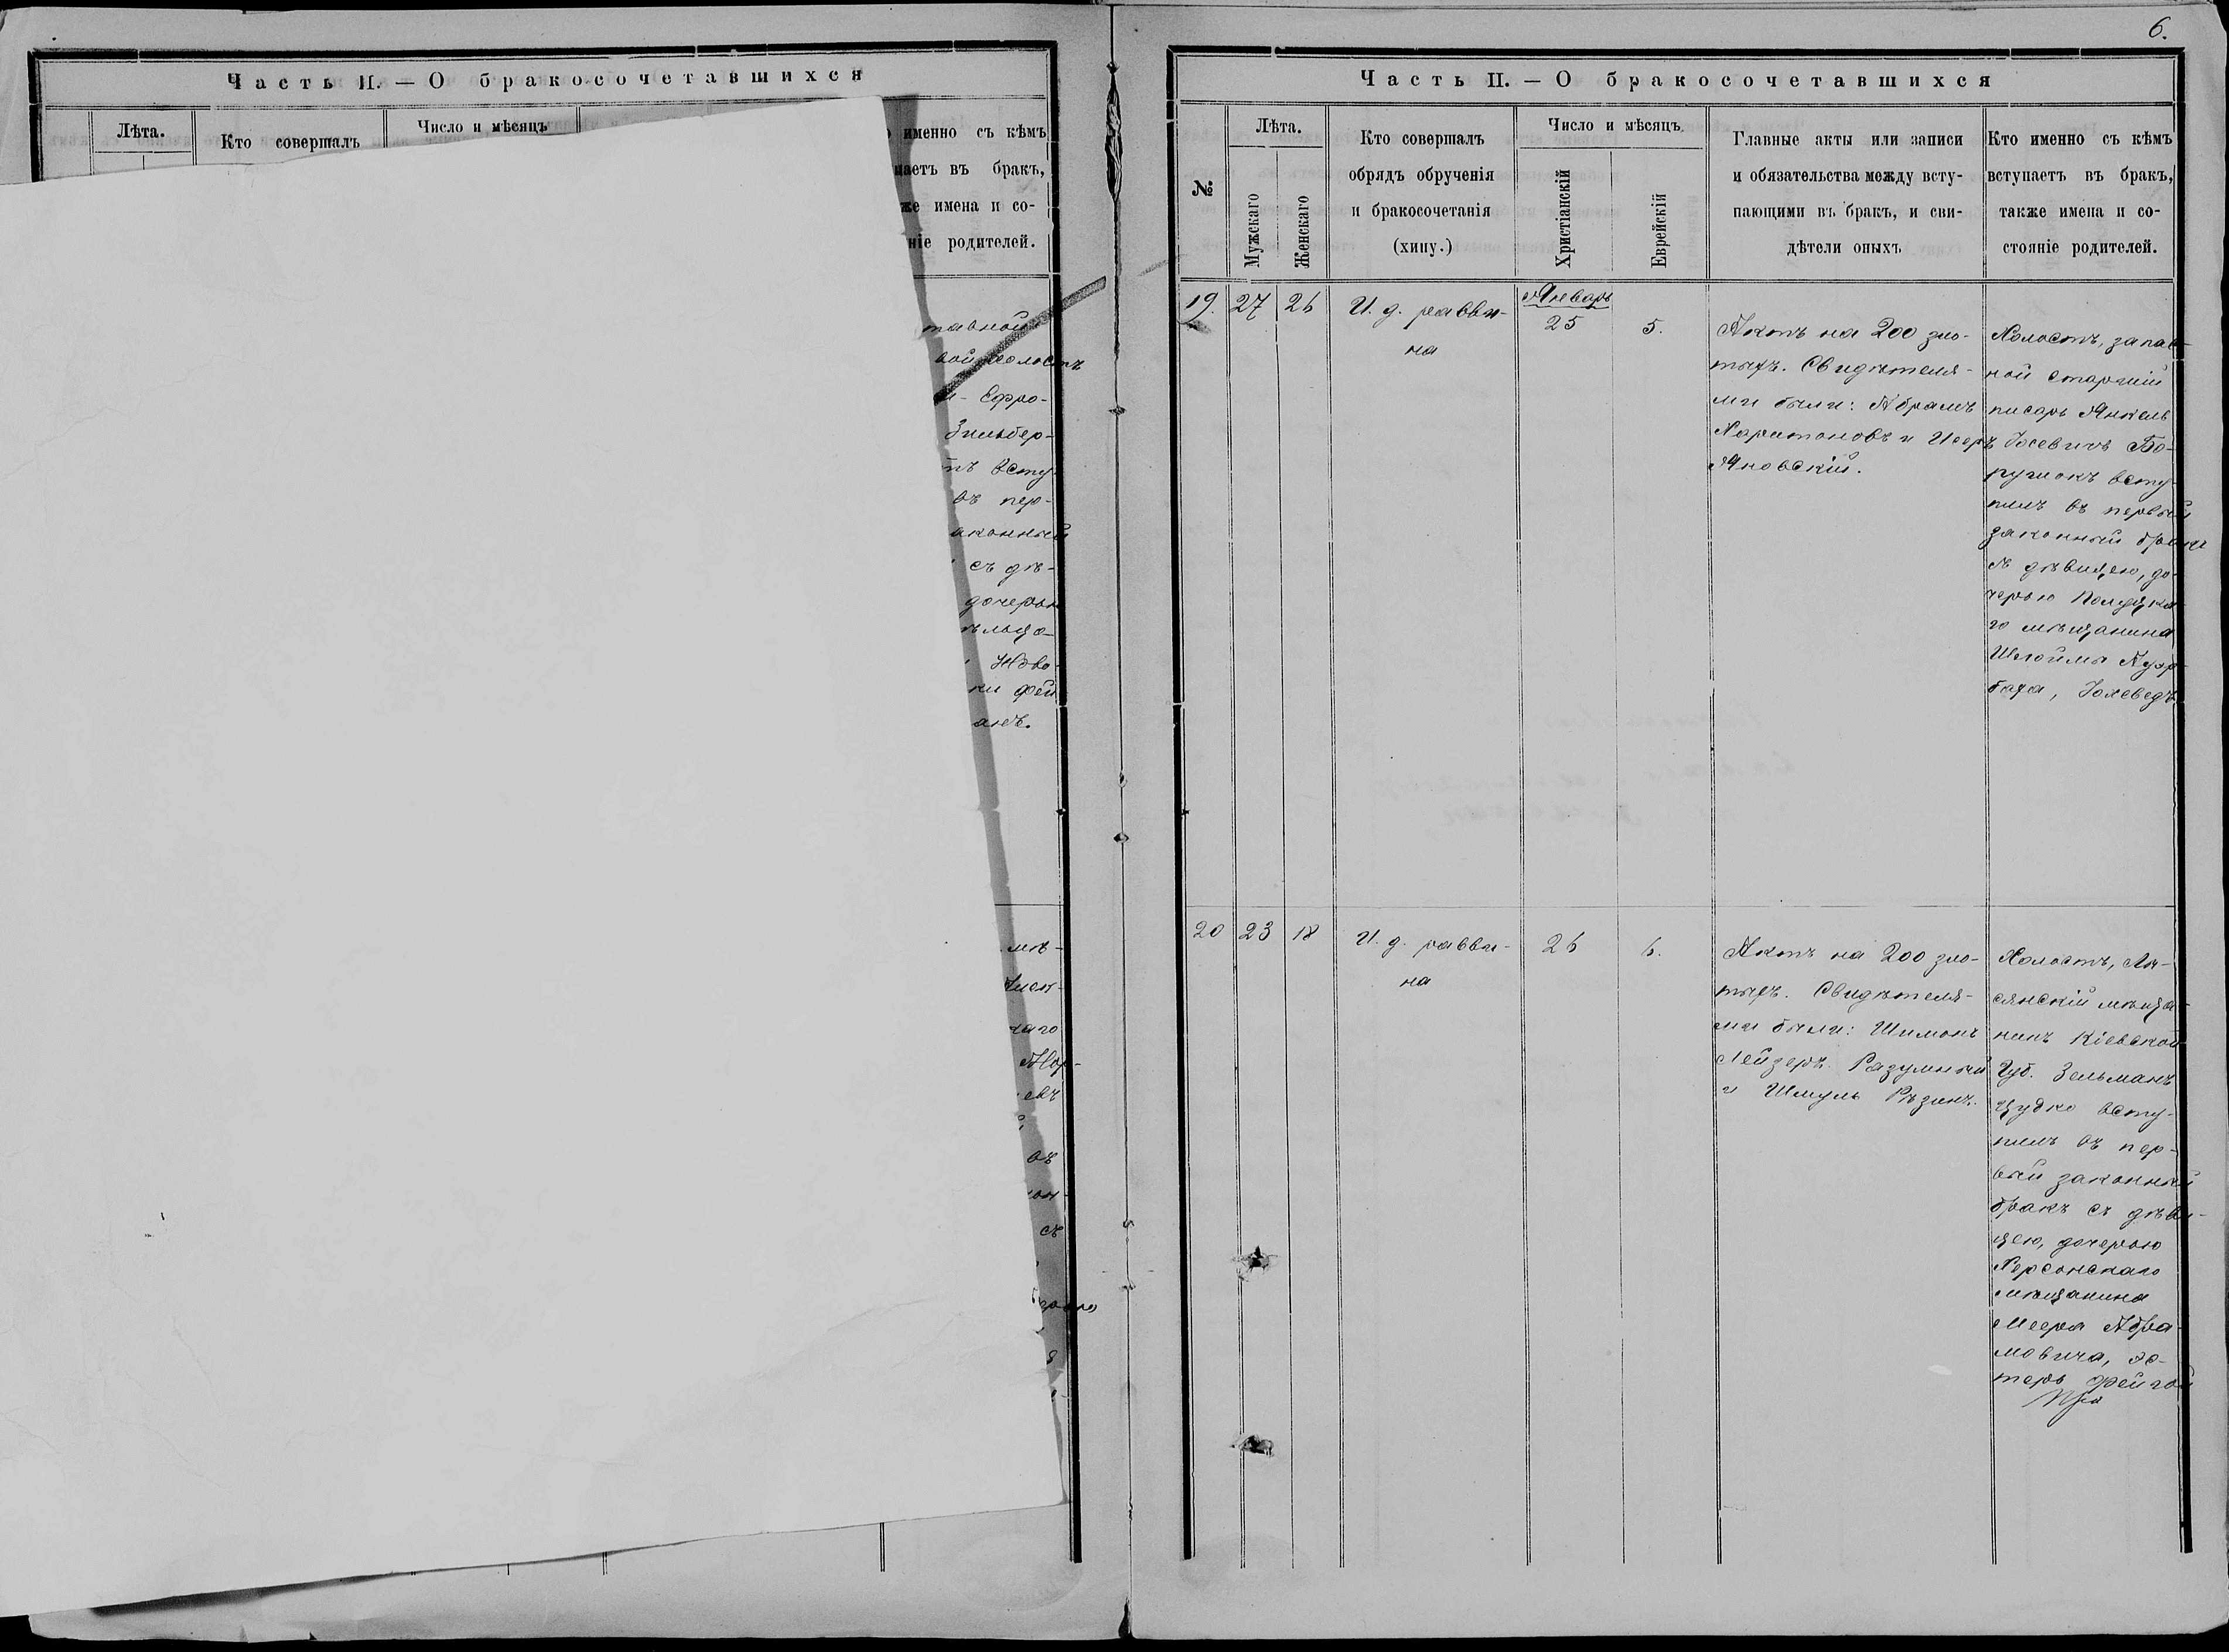 Часть II. — О бракосочетавшихся
Лѣта.
Кто совершалъ
Число и мѣсяцъ
именно съ кѣмъ
паетъ въ бракъ,
же имена и со-
ніе родителей.
тавной
вой холостъ
Ефро-
Зильбер-
въ пер-
аконный
съ дѣ-
дочерью
Ново-
анъ.
мѣ-
каго
евъ
въ
съ
6.
Часть II. — О бракосочетавшихся
№
Лѣта.
Мужскаго
Женскаго
Кто совершалъ
обрядъ обрученія
и бракосочетанія
(хипу.)
Число и мѣсяцъ.
Христіанскій
Еврейскій
Главные акты или записи
и обязательства между всту-
пающими въ бракъ, и сви-
дѣтели оныхъ
Кто именно съ кѣмъ
вступаетъ въ бракъ,
также имена и со-
стояніе родителей.
19. 27 26
И. д. равви-
на
Январь
25 5.
Актъ на 200 зло-
тыхъ. Свидѣтеля-
ми были: Абрамъ
Харитоновъ и Исеръ
Яновскій.
Холостъ, запас-
ной старшій
писарь Янкель
всту-
пилъ въ первый
законный бракъ
съ дѣвицею, до-
черью
го мѣщанина
Шлоймы Ауэр-
баха, Іохеведъ.
20 23 18
И. д. равви-
на
26 6.
Актъ на 200 зло-
тыхъ. Свидѣтеля-
ми были: Шимонъ
Лейзеръ Разумный
и Шмуль Рѣзинъ.
Холостъ, Лы-
сянскій мѣща-
нинъ Кіевской
Губ. Зельманъ
всту-
пилъ въ пер-
вый законный
бракъ съ дѣви-
цею, дочерью
Херсонскаго
мѣщанина
Меера Абра-
мовича, Эс-
теръ Фейгой